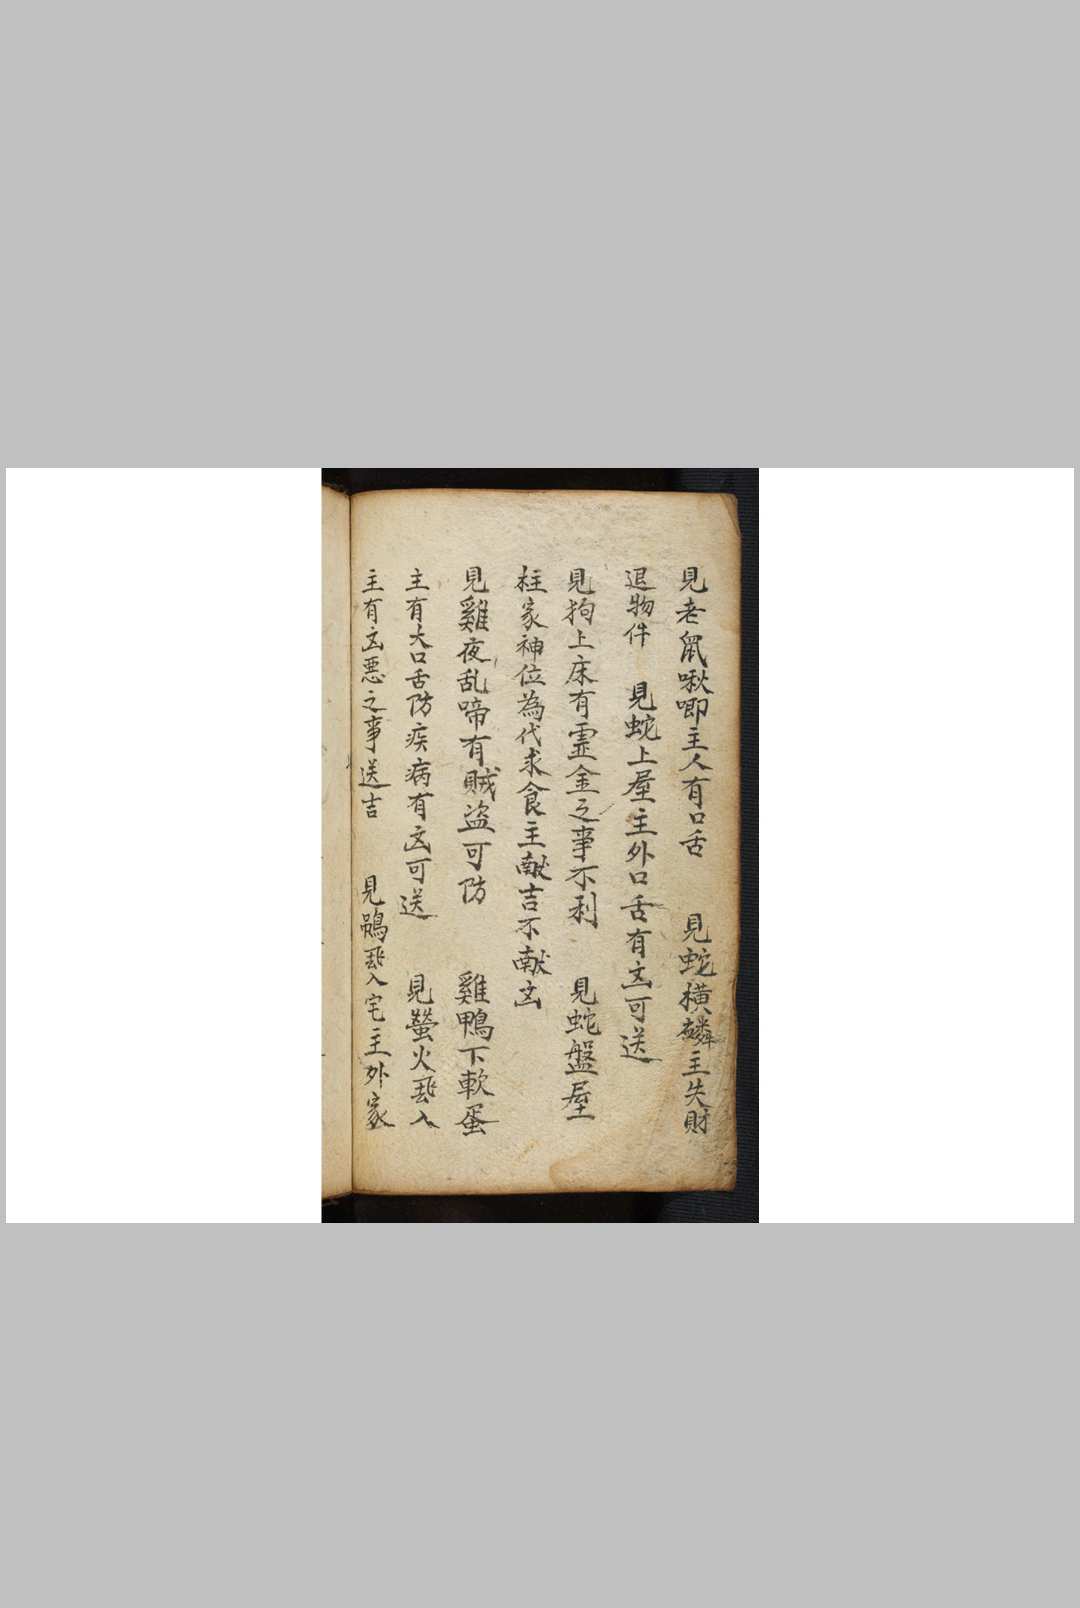 見老鼠啾唧主人有口舌　見蛇橫麟主失財
退物件　見蛇上屋主外口舌有㐫可送
見狗上床有霊金之事不利　見蛇盤屋
柱家神位為代求食主献吉不献㐫
見雞夜乱啼有賊盜可防　雞鴨下軟蛋
主有大口舌防疾病有㐫可送　見螢火飛入
主有㐫悪之事送吉　見鵶飛入宅主外家